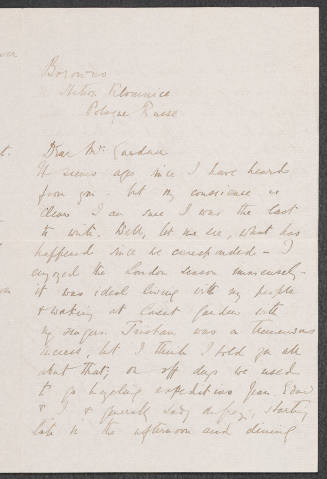 Borowno
Station Klomnice
Pologne Russe
Dear Mrs.
It seems ages since I have heard
from you - but my conscience is
clear I am sure I was the last
to write. Well, let me see, what has
happened since we corresponded - I
enjoyed the London season immensely -
it was ideal living with my people
& working at Covent Garden with
my singers. Tristan was a tremendous
success, but I think I told you all
about that; on off days we used
to go bicycling expeditions Jean, Edouard
& I & generally Lady de Grey, starting
late in the afternoon and dining